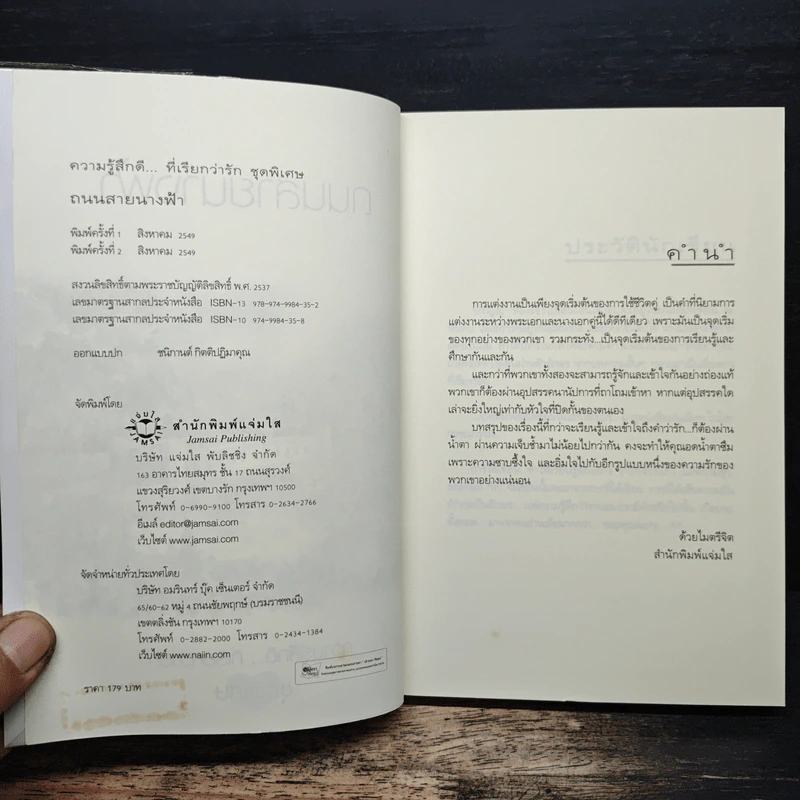 ความรู้สึกดี... ที่เรียกว่ารัก ชุดพิเศษ
ถนนสายนางฟ้า
พิมพ์ครั้งที่ 1 สิงหาคม 2549
พิมพ์ครั้งที่ 2 สิงหาคม 2549
สงวนลิขสิทธิ์ตามพระราชบัญญัติลิขสิทธิ์ พ.ศ. 2537
เลขมาตรฐานสากลประจำหนังสือ ISBN-13 978-974-9984-35-2
เลขมาตรฐานสากลประจำหนังสือ ISBN-10 974-9984-35-8
ออกแบบปก ชนิกานต์ กิตติปฏิมาคุณ
จัดพิมพ์โดย
แจ่มใส
JAMSAI
สำนักพิมพ์แจ่มใส
Jamsai Publishing
บริษัท แจ่มใส พับลิชชิ่ง จำกัด
163 อาคารไทยสมุทร ชั้น 17 ถนนสุรวงศ์
แขวงสุริยวงศ์ เขตบางรัก กรุงเทพฯ 10500
โทรศัพท์ 0-6990-9100 โทรสาร 0-2634-2766
อีเมล์ editor@jamsai.com
เว็บไซต์ www.jamsai.com
จัดจำหน่ายทั่วประเทศโดย
บริษัท อมรินทร์ บุ๊ค เซ็นเตอร์ จำกัด
65/60-62 หมู่ 4 ถนนชัยพฤกษ์ (บรมราชชนนี)
เขตตลิ่งชัน กรุงเทพฯ 10170
โทรศัพท์ 0-2882-2000 โทรสาร 0-2434-1384
เว็บไซต์ www.naiin.com
ราคา 179 บาท
คำนำ
การแต่งงานเป็นเพียงจุดเริ่มต้นของการใช้ชีวิตคู่ เป็นคำที่นิยามการ
แต่งงานระหว่างพระเอกและนางเอกคู่นี้ได้ดีทีเดียว เพราะมันเป็นจุดเริ่ม
ของทุกอย่างของพวกเขา รวมกระทั่ง...เป็นจุดเริ่มต้นของการเรียนรู้และ
ศึกษากันและกัน
และกว่าที่พวกเขาทั้งสองจะสามารถรู้จักและเข้าใจกันอย่างถ่องแท้
พวกเขาก็ต้องผ่านอุปสรรคนานัปการที่ถาโถมเข้าหา หากแต่อุปสรรคใด
เล่าจะยิ่งใหญ่เท่ากับหัวใจที่ปิดกั้นของตนเอง
บทสรุปของเรื่องนี้ที่กว่าจะเรียนรู้และเข้าใจถึงคำว่ารัก...ก็ต้องผ่าน
น้ำตา ผ่านความเจ็บช้ำมาไม่น้อยไปกว่ากัน คงจะทำให้คุณอดน้ำตาซึม
เพราะความซาบซึ้งใจ และอิ่มใจไปกับอีกรูปแบบหนึ่งของความรักของ
พวกเขาอย่างแน่นอน
ด้วยไมตรีจิต
สำนักพิมพ์แจ่มใส